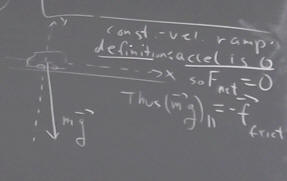 Y
const-vel ramp.
definition: accel is 0
X
so F⃗net = 0
Thus (mg⃗)|| = -f⃗frict
mg⃗